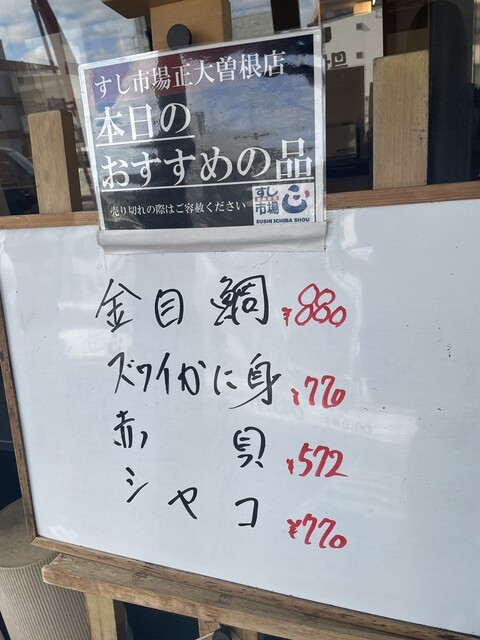 すし市場正大曽根店
本日の
おすすめの品
売り切れの際はご容赦ください
すし
市場
SUSHI ICHIBA SHOU
金目鯛 ¥880
ズワイかに身 ¥770
赤貝 ¥572
シャコ ¥770